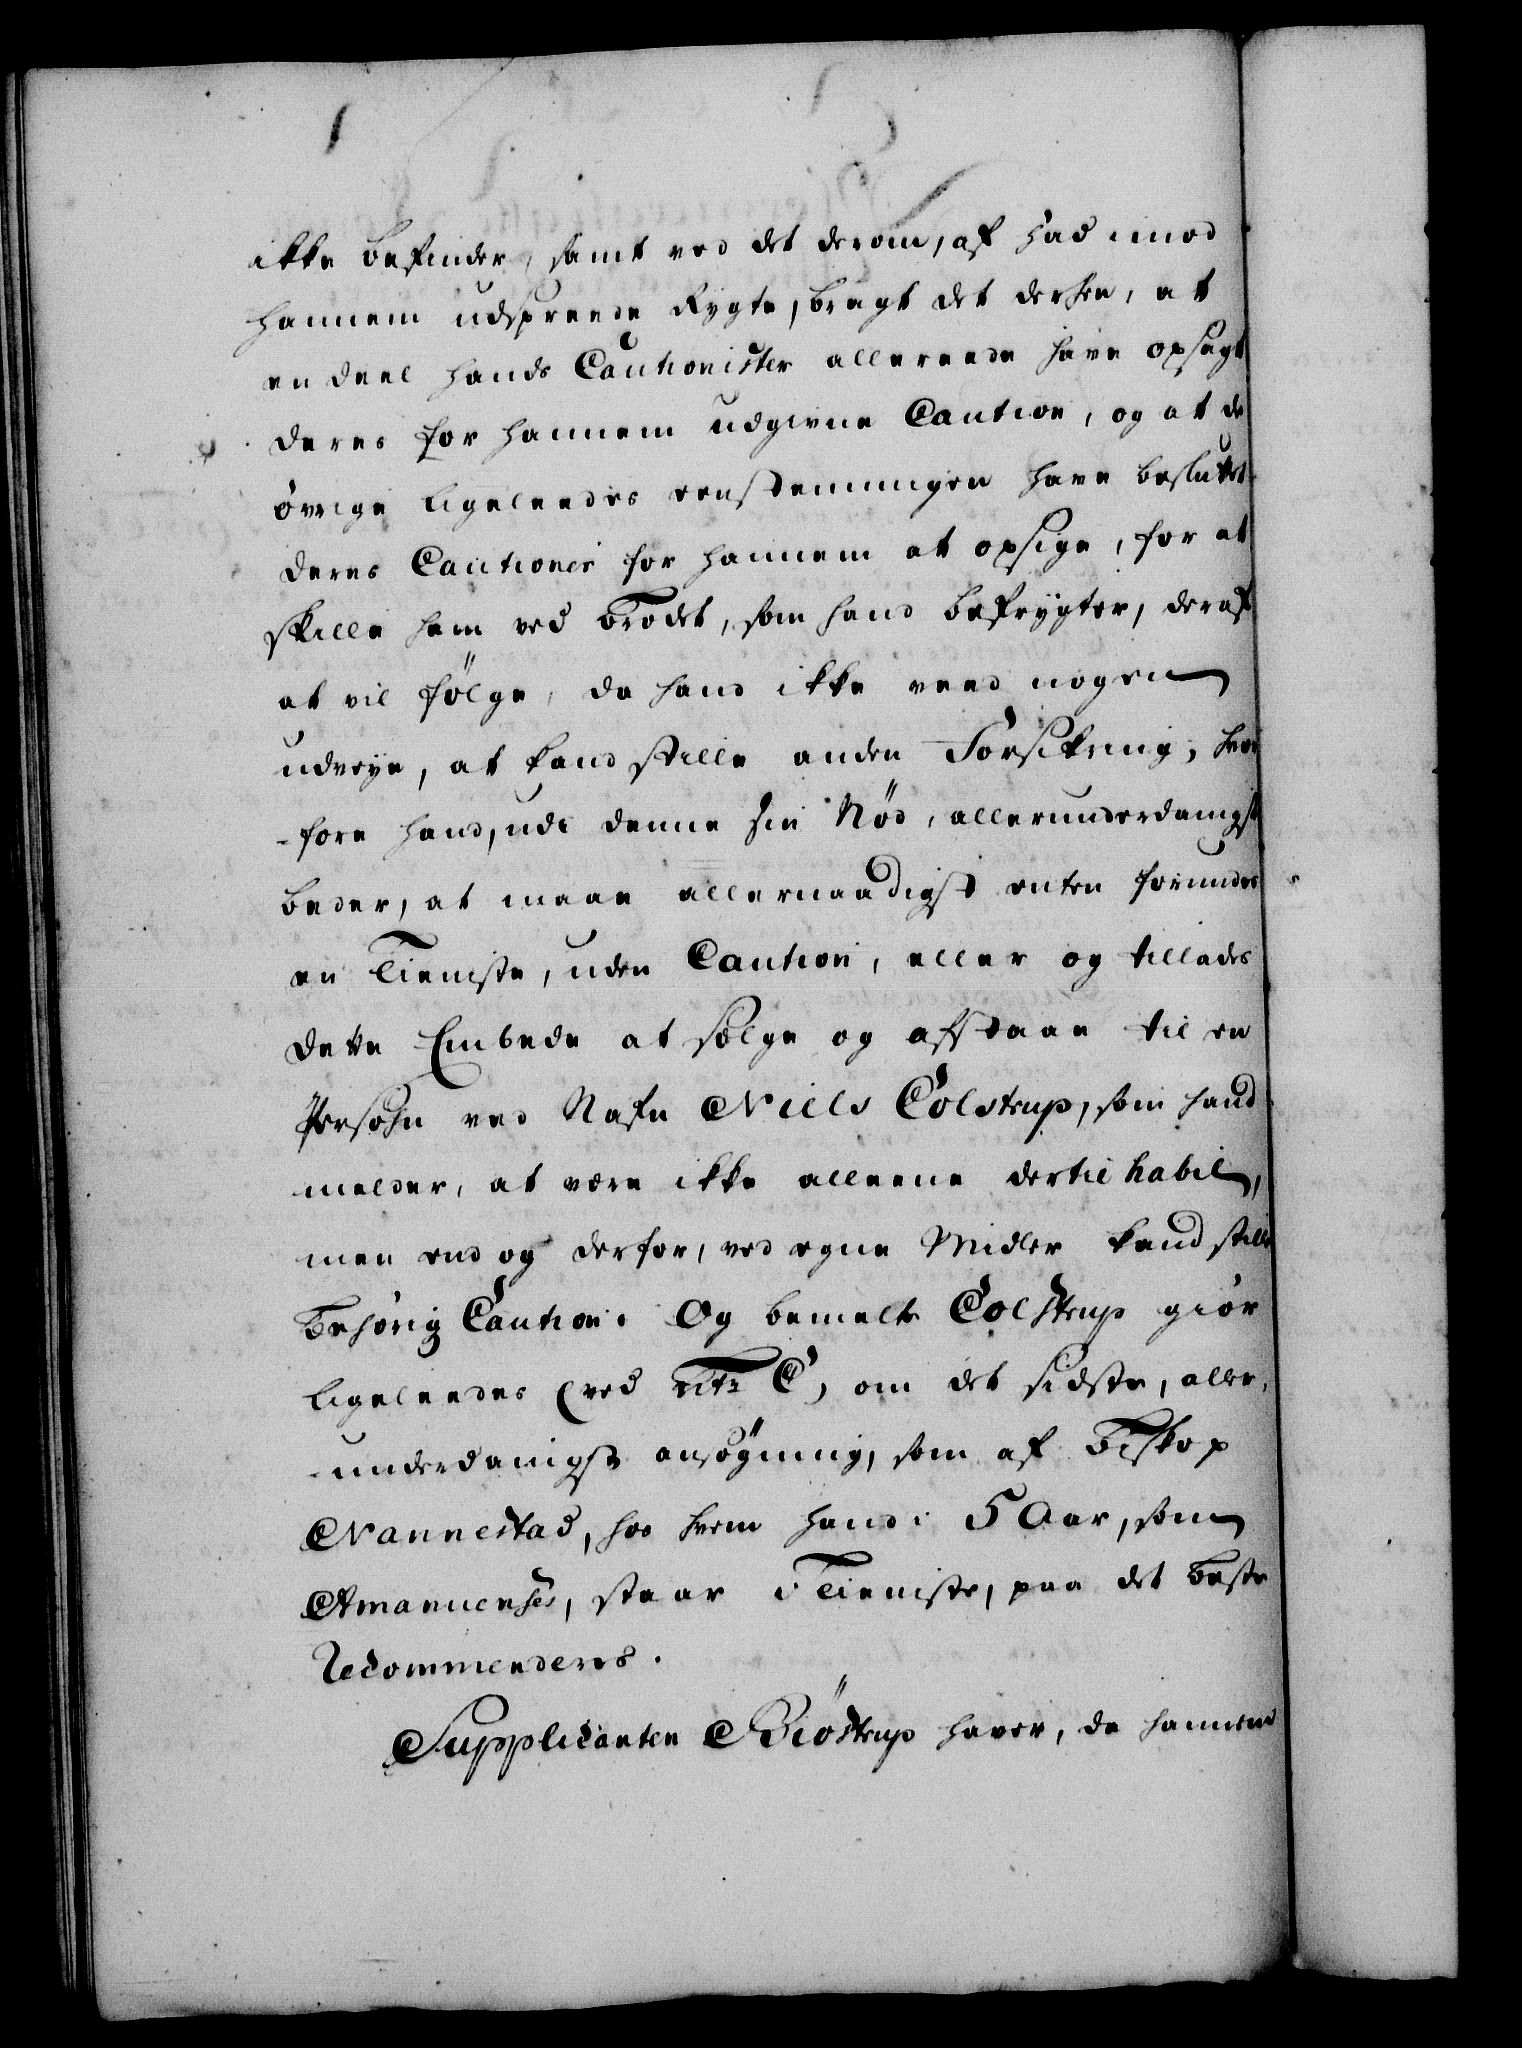 ikke befinder, samt ved det derom, af had imod
hannem udspreede Rygte, bragt det derhen, at
en deel hands Cautionister allereede have opsagt
deres for hannem udgivne Caution, og at de
øvrige ligeleedes eenstemmigen have besluttet
deres Cautioner for hannem at opsige, for at
skille ham ved Brødet, som hand befrygter, deraf
at vil følge, da hand ikke veed nogen
udveye, at kand stille anden Forsikring; hvor
-fore hand, udi denne sin Nød, allerunderdanigst
beder, at maae allernaadigst enten forundes
en Tieniste, uden Caution, eller og tillades
dette Embede at sælge og afstaae til en
Persohn ved Nafn Niels Colstrup, som hand
melder, at være ikke alleene dertil habil,
men end og derfor, ved egne Midler kand stille
behørig Caution. Og bemelte Colstrup giør
ligeleedes (ved Litr C) om det sidste, aller-
-underdanigst ansøgning, som af Biskop
Nannestad, hos hvem hand i 5 Aar, som
Amanuensis, staar i Tieniste, paa det beste
Recommenderes.
Supplicanten Biöstrup haver, da hannem